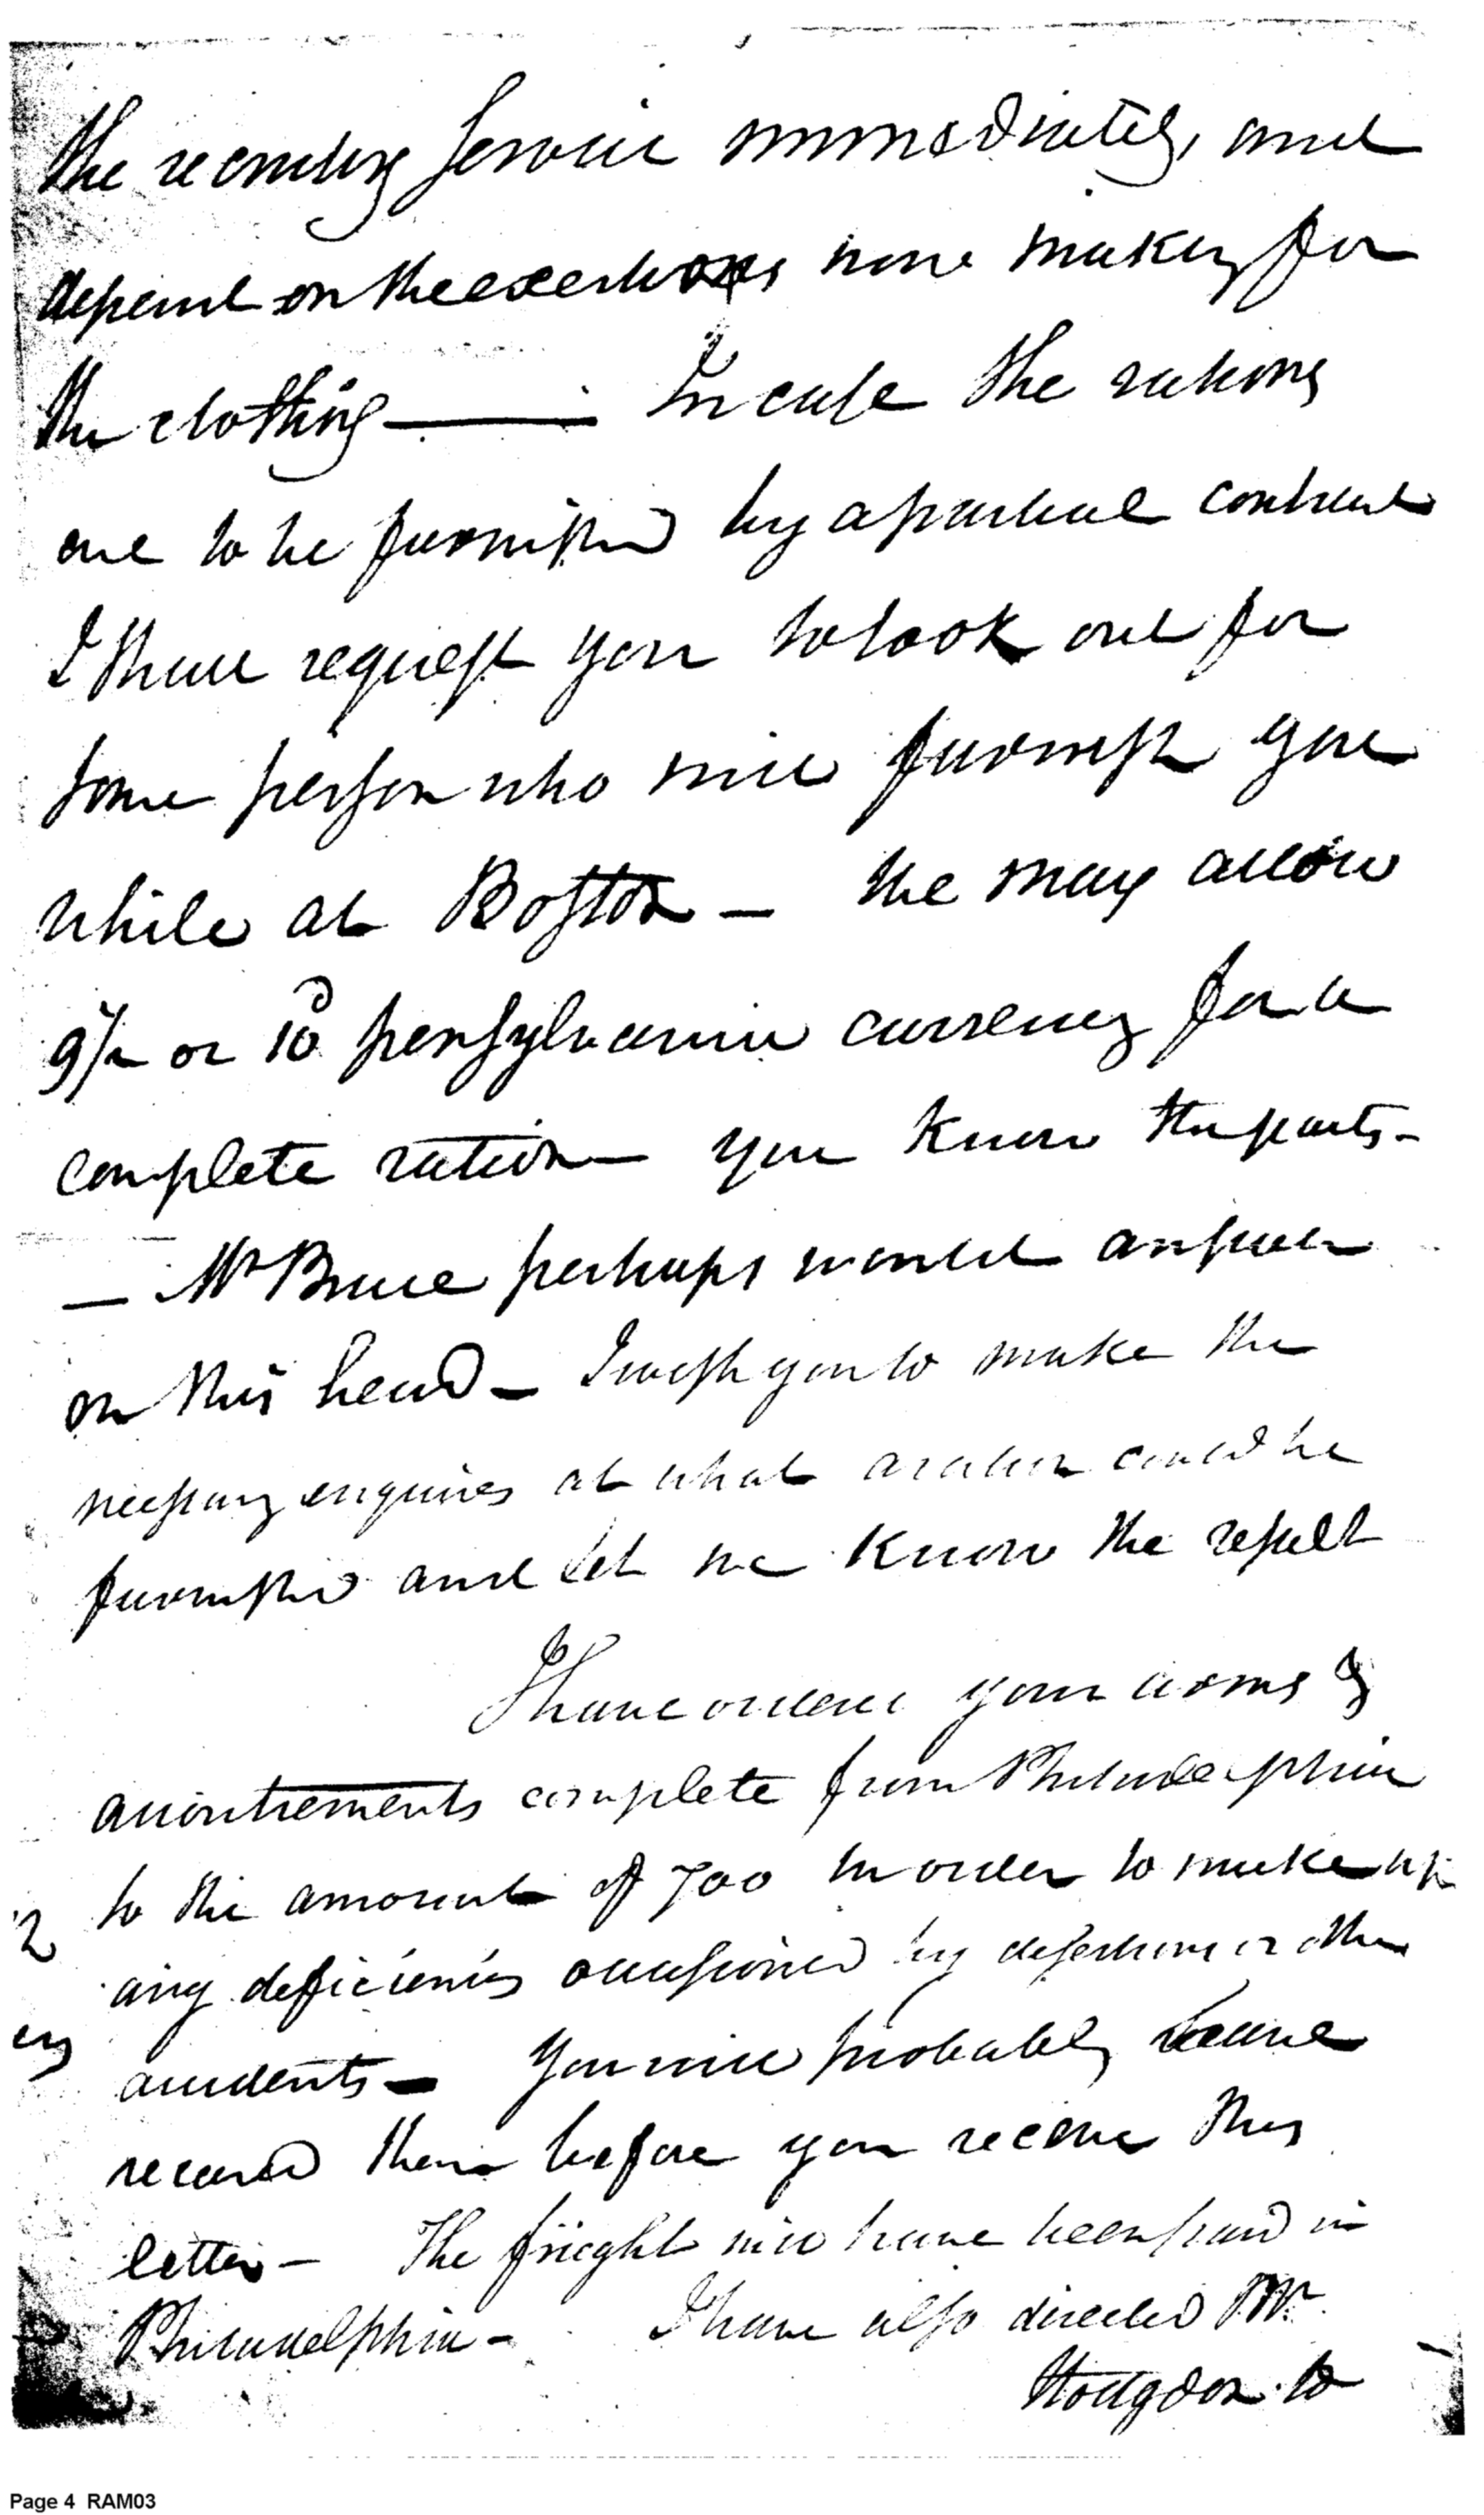 the recruiting service immediately, and
depend on the exertions now making for
the clothing — In case the rations
are to be furnished by a partial contract
I shall request you to look out for
some person who will furnish you
while at Boston — We may allow
9/2 or 10d pensylvania currency for a
complete ration — you know the parts —
— Mr Bruce perhaps would answer
on this head — I wish you to make the
necessary enquiries at what a ration could be
furnished and let me know the result
I have ordered your arms &
accoutrements complete from Philadelphia
to the amount of 700 in order to make up
any deficiencies occasioned by desertion or other
accidents — You will probably have
received them before you receive this
letter — The frieght will have been paid in
Philadelphia — I have also directed Mr
Hodgdon to
Page 4 RAM03